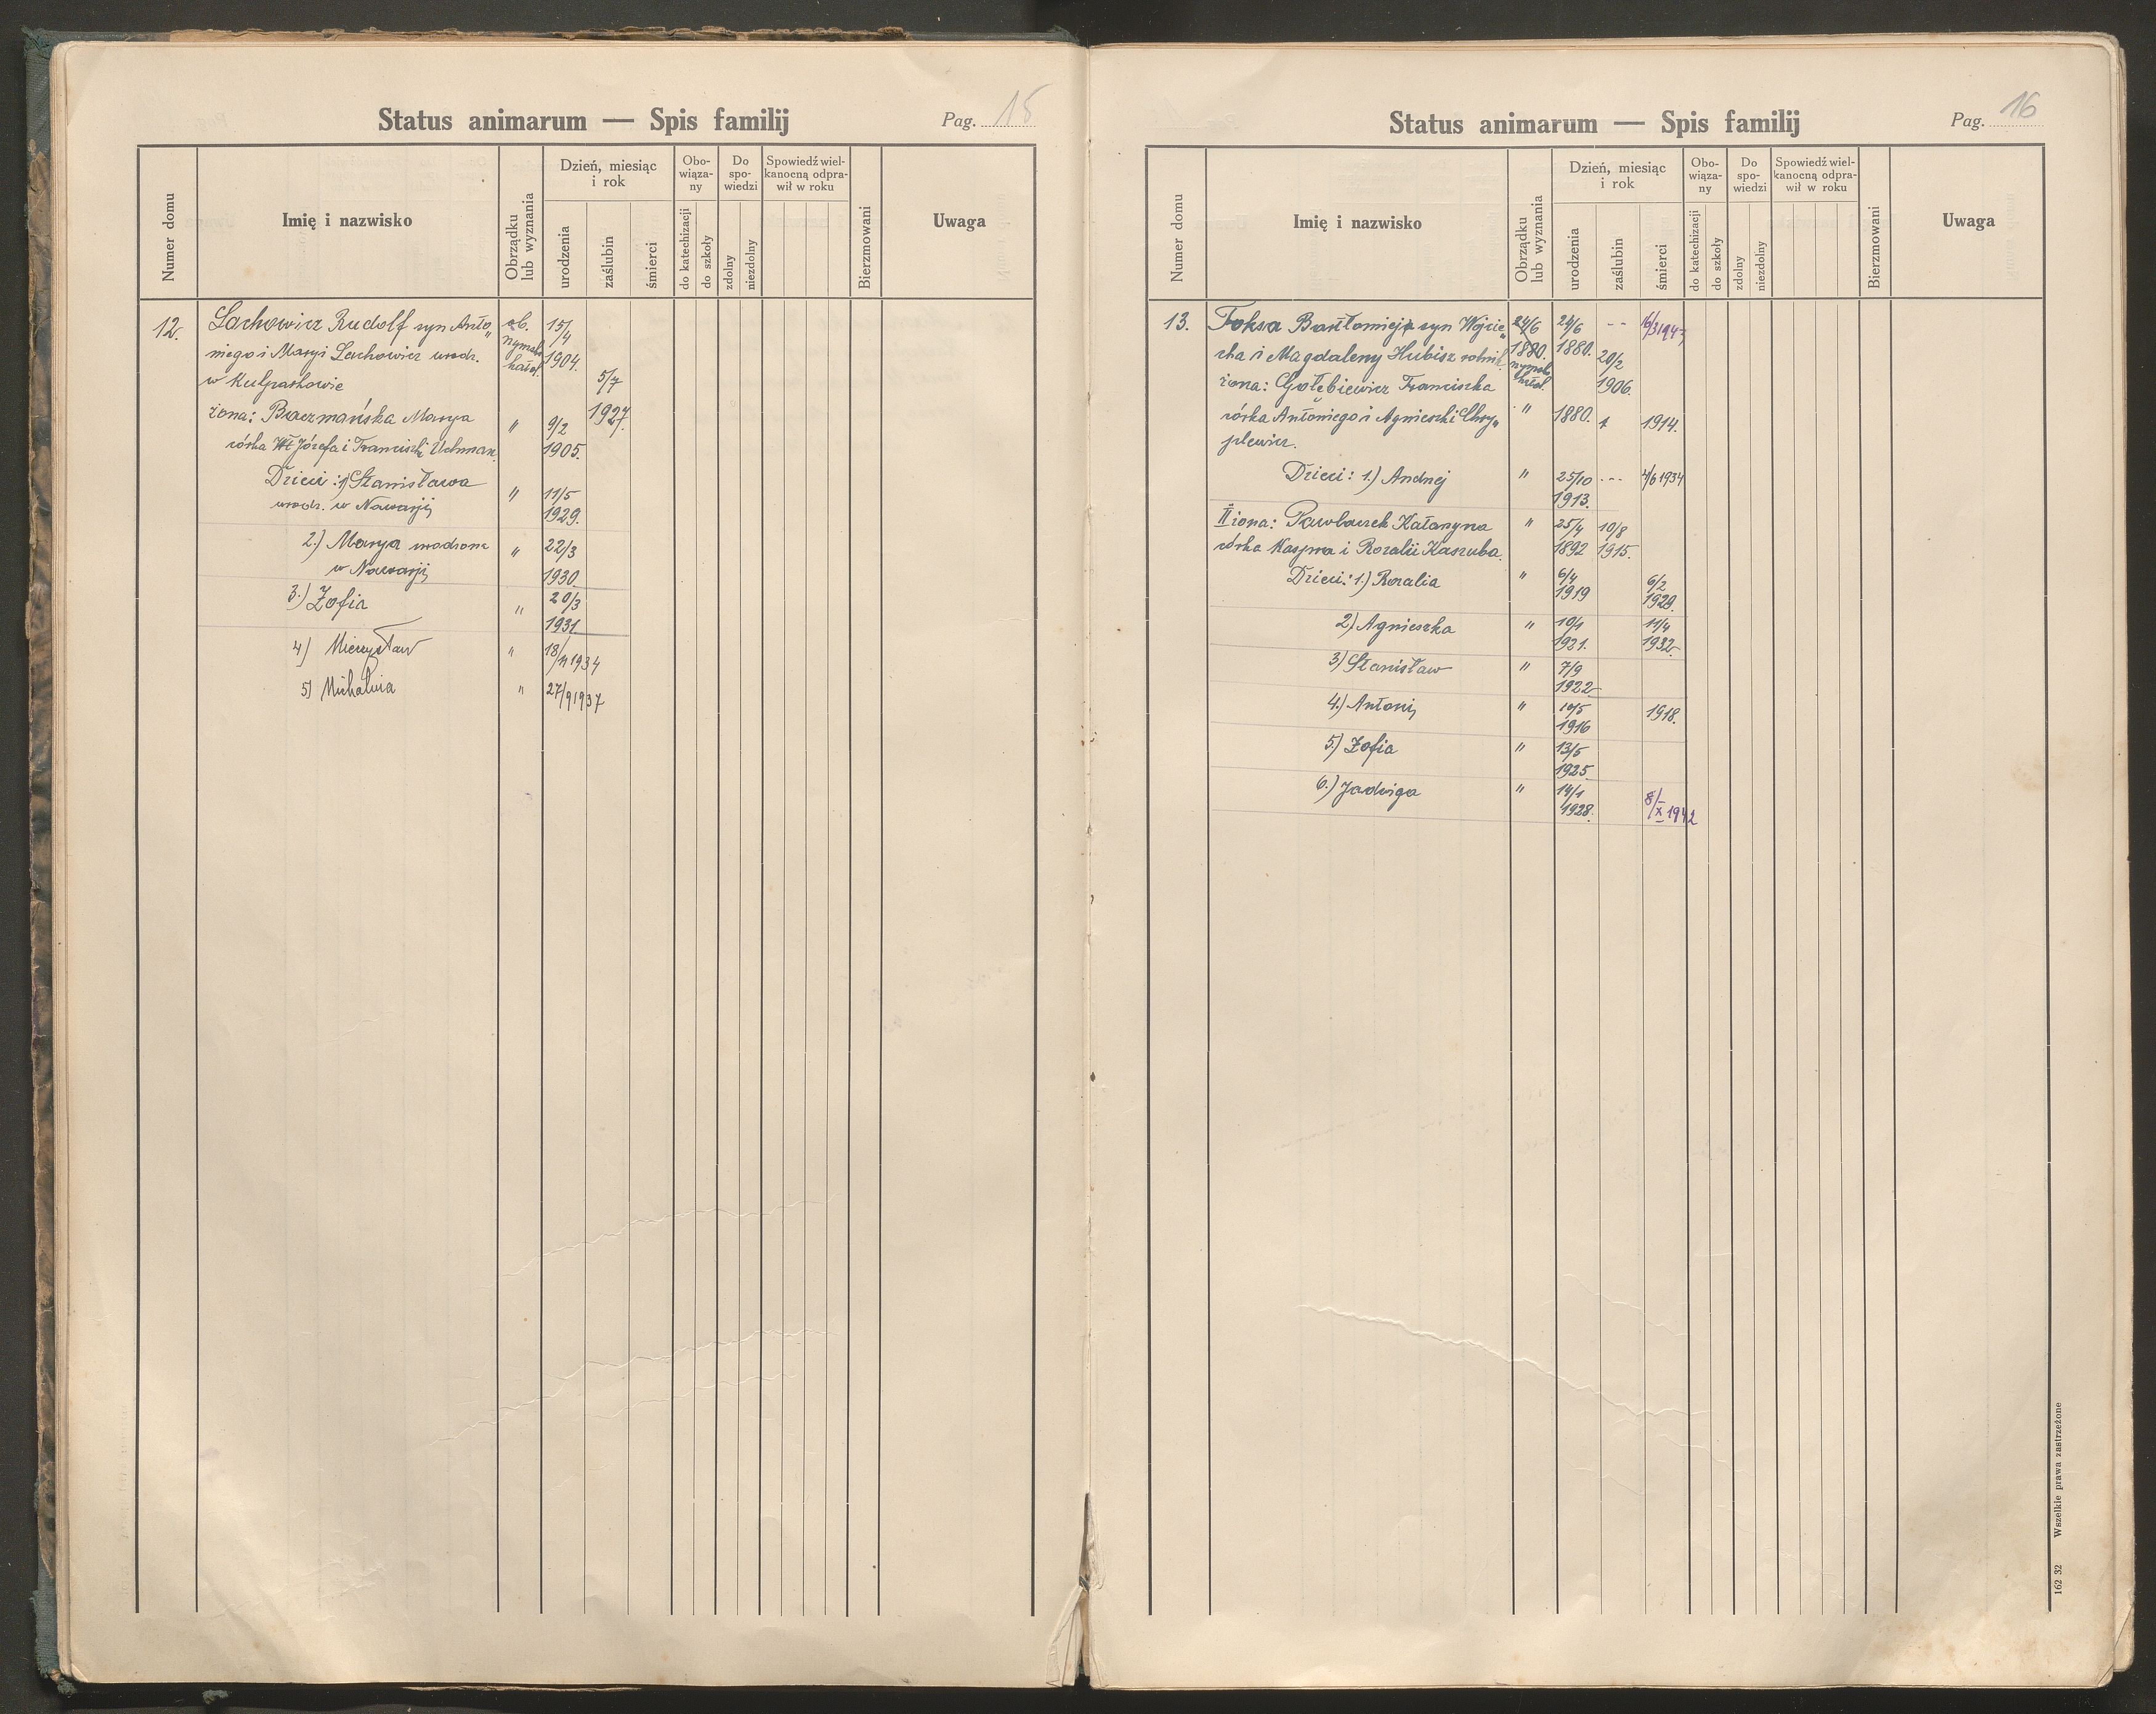 Status animarum — Spis familij
Pag. 15
Numer domu
Imię i nazwisko
Obrządku lub wyznania
Dzień, miesiąc i rok
urodzenia
zaślubin
śmierci
Obo-
wiąza-
ny
do katechizacji
do szkoły
Do
spo-
wiedzi
zdolny
niezdolny
Spowiedź wiel-
kanocną odpra-
wił w roku
Bierzmowani
Uwaga
12. Lachowicz Rudolf syn Anto„ ob. 15/4
niego i Maryi Lachowicz urodz. rzymsk. 1904.
w Kulparkowie katol. 5/7
żona: Baczmańska Marya " 9/2 1927.
córka Józefa i Franciszki 1905.
Dzieci: 1) Stanisława " 11/5
urodz. w Nawarji 1929.
2.) Marya urodzona " 22/3
w Nawarji 1930.
3.) Zofia " 20/3
1931.
4) Mieczysław " 18/11 1934
5) Michalina " 27/9 1937
Status animarum — Spis familij
Pag. 16
Numer domu
Imię i nazwisko
Obrządku lub wyznania
Dzień, miesiąc i rok
urodzenia
zaślubin
śmierci
Obo-
wiąza-
ny
do katechizacji
do szkoły
Do
spo-
wiedzi
zdolny
niezdolny
Spowiedź wiel-
kanocną odpra-
wił w roku
Bierzmowani
Uwaga
13. Foksa Bartłomiej syn Wojcie„ 24/6 24/6 -- 16/3 1943
cha i Magdaleny Hubisz rolnik. 1880. 1880. 20/2
żona: Gołębiewicz Franciszka rzymsk. 1906.
córka Antoniego i Agnieszki Chry„ " 1880. 1914.
plewicz.
Dzieci: 1.) Andrzej " 25/10 --- 4/6 1934
1913.
II żona: Pawlaczek Katarzyna " 25/4 10/8
córka Kaspra i Rozalii Kaszuba 1892 1915.
Dzieci: 1.) Rozalia " 6/4 6/2
1919 1929.
2.) Agnieszka " 10/1 11/4
1921. 1932.
3) Stanisław " 7/9
1922
4.) Antoni " 10/5 1918.
1916
5.) Zofia " 13/5
1925.
6.) Jadwiga " 14/1 8/X 1942
1928.
162 32 Wszelkie prawa zastrzeżone